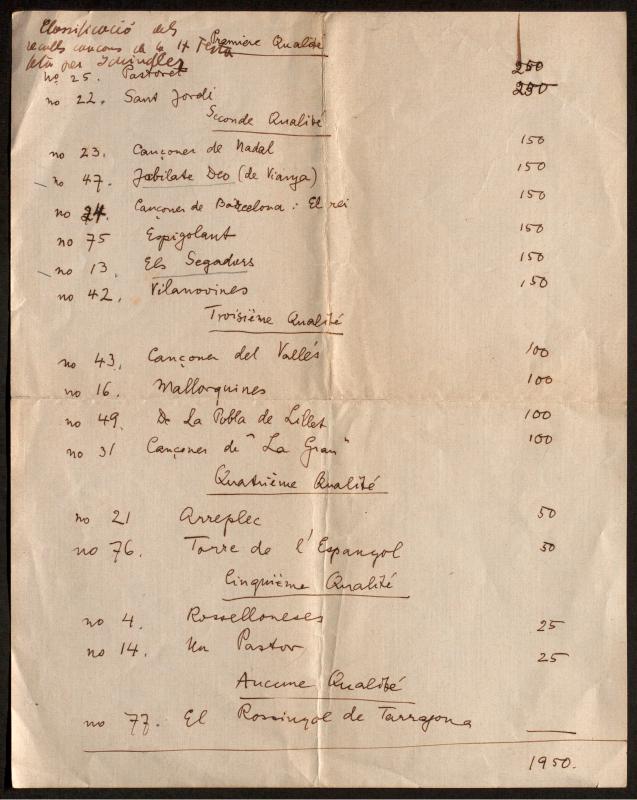 Classificació dels
reculls cançons de la IV Festa
feta per Schindler
Première Qualité
no 25. Pastoret 250
no 22. Sant Jordi 250
Seconde Qualité
no 23. Cançoner de Nadal 150
no 47. Jubilate Deo (de Vianya) 150
no 24. Cançoner de Barcelona: El rei 150
no 75 Espigolant 150
no 13. Els Segadors 150
no 42. Vilanovines 150
Troisième Qualité
no 43. Cançoner del Vallés 100
no 16. Mallorquines 100
no 49. De La Pobla de Lillet 100
no 31 Cançoner de "La Gran" 100
Quatrième Qualité
no 21 Arreplec 50
no 76. Torre de l'Espanyol 50
Cinquième Qualité
no 4. Rosselloneses 25
no 14. Un Pastor 25
Aucune Qualité
no 77. El Rossinyol de Tarragona —
1950.